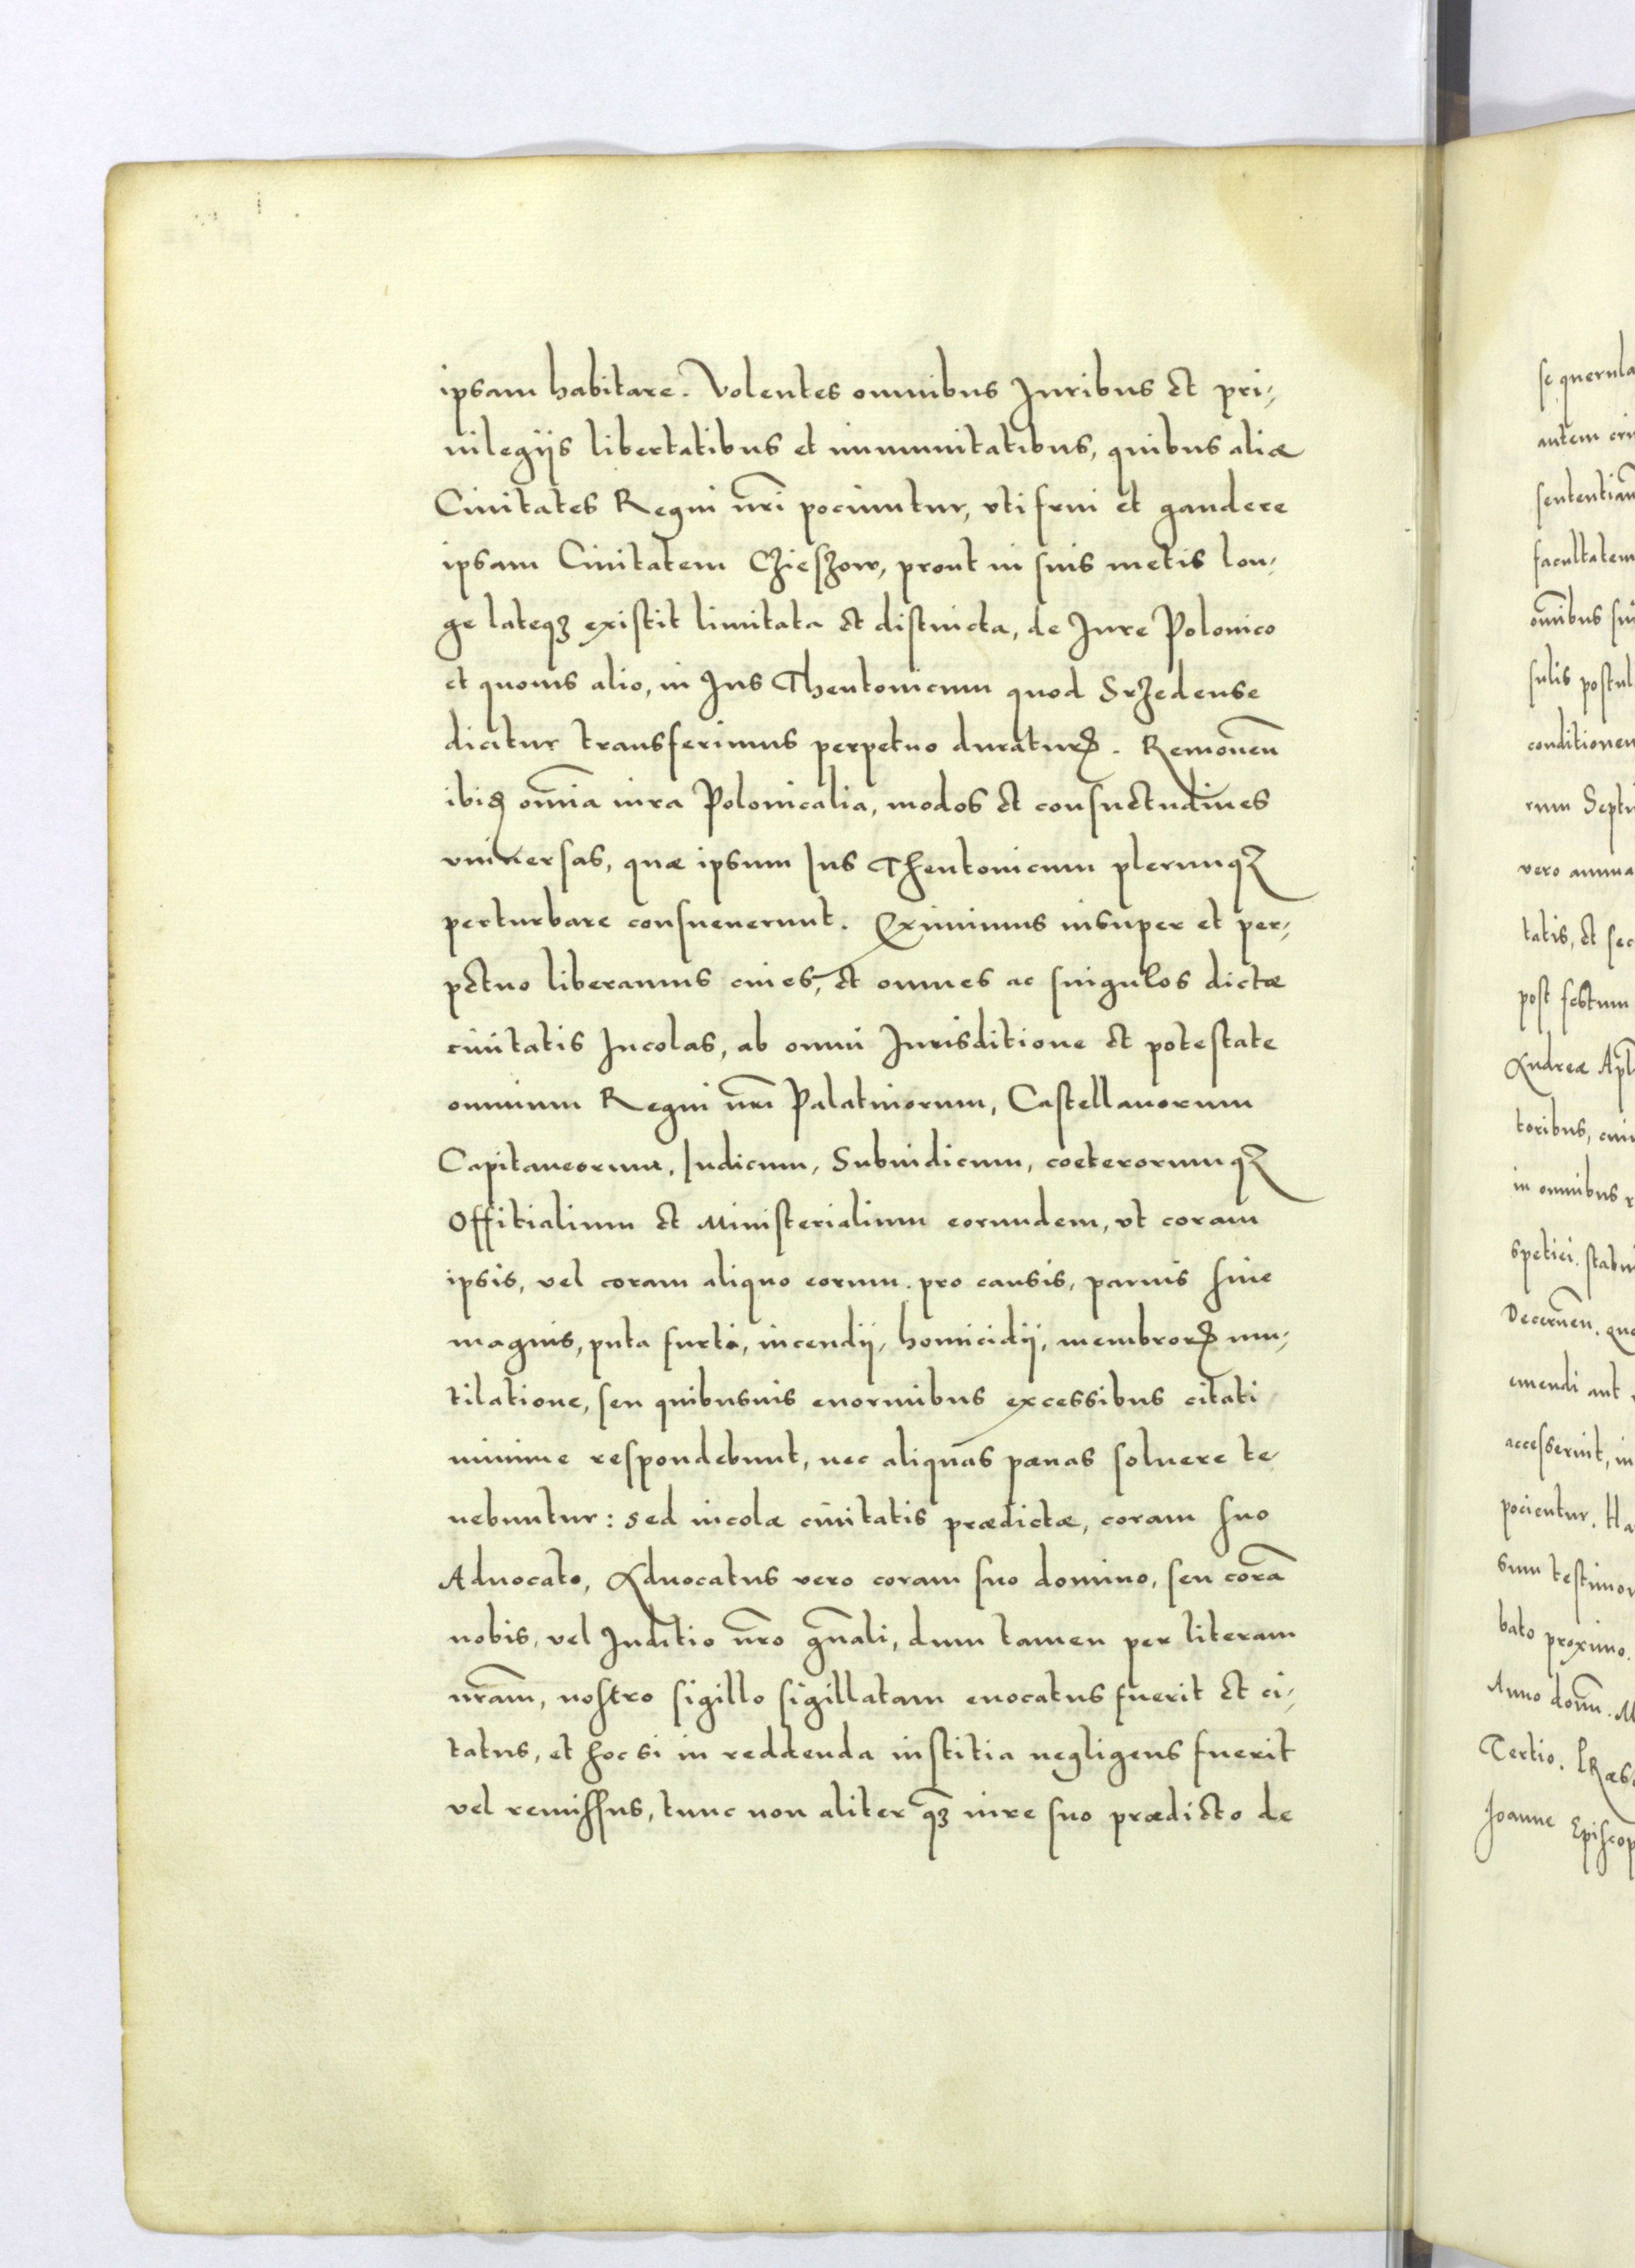 ipsam habitare. Volentes omnibus Juribus et pri-
uilegijs libertatibus et immunitatibus, quibus aliæ
Ciuitates Regni nr̃i pociuntur, vti frui et gaudere
ipsam Ciuitatem Czieszow, prout in suis metis lon-
ge lateqꝫ existit limitata et distincta, de Jure Polonico
et quouis alio, in Jus Theutonicum quod Srzedense
dicitur transferimus perpetuo duraturꝝ. Remouen̄
ibiꝫ om̄ia iura Polonicalia, modos et consuetudines
vniversas, quæ ipsum Jus Theutonicum plerumqꝫ
perturbare consueuerunt. Eximimus insuper et per-
petuo liberamus ciues, et omnes ac singulos dictæ
ciuitatis Incolas, ab omni Jurisditione et potestate
omnium Regni nr̃i Palatinorum, Castellanorum
Capitaneorum, Iudicum, Subiudicum, coeterorumqꝫ
Offitialium et Ministerialium eorundem, vt coram
ipsis, vel coram aliquo eorum. pro causis, paruis siue
magnis, puta furti, incendij, homicidij, membrorꝝ mu-
tilatione, seu quibusuis enormibus excessibus citati
minime respondebunt, nec aliquas pænas soluere te-
nebuntur: sed incolæ ciuitatis prædictæ, coram suo
Aduocato, Aduocatus vero coram suo domino, seu corā
nobis, vel Juditio nr̃o gn̄ali, dum tamen per literam
nr̃am, nostro sigillo sigillatam euocatus fuerit et ci-
tatus, et hoc si in reddenda iustitia negligens fuerit
vel remissus, tunc non aliter qꝫ iure suo prædicto de
se querula
autem
sententiam
facultatem
om̄ibus
sulis postul
conditionem
rum Septi
vero annua
tatis, et sec
post festum
Andreæ Apl̄
toribus,
in omnibus
spetiei. stabu
Decernen̄.
emendi aut
accesserint, in
pocientur. Ha
sum testimon
bato proximo.
Anno dom̄. M
Tertio. PRæs
Joanne Episcop